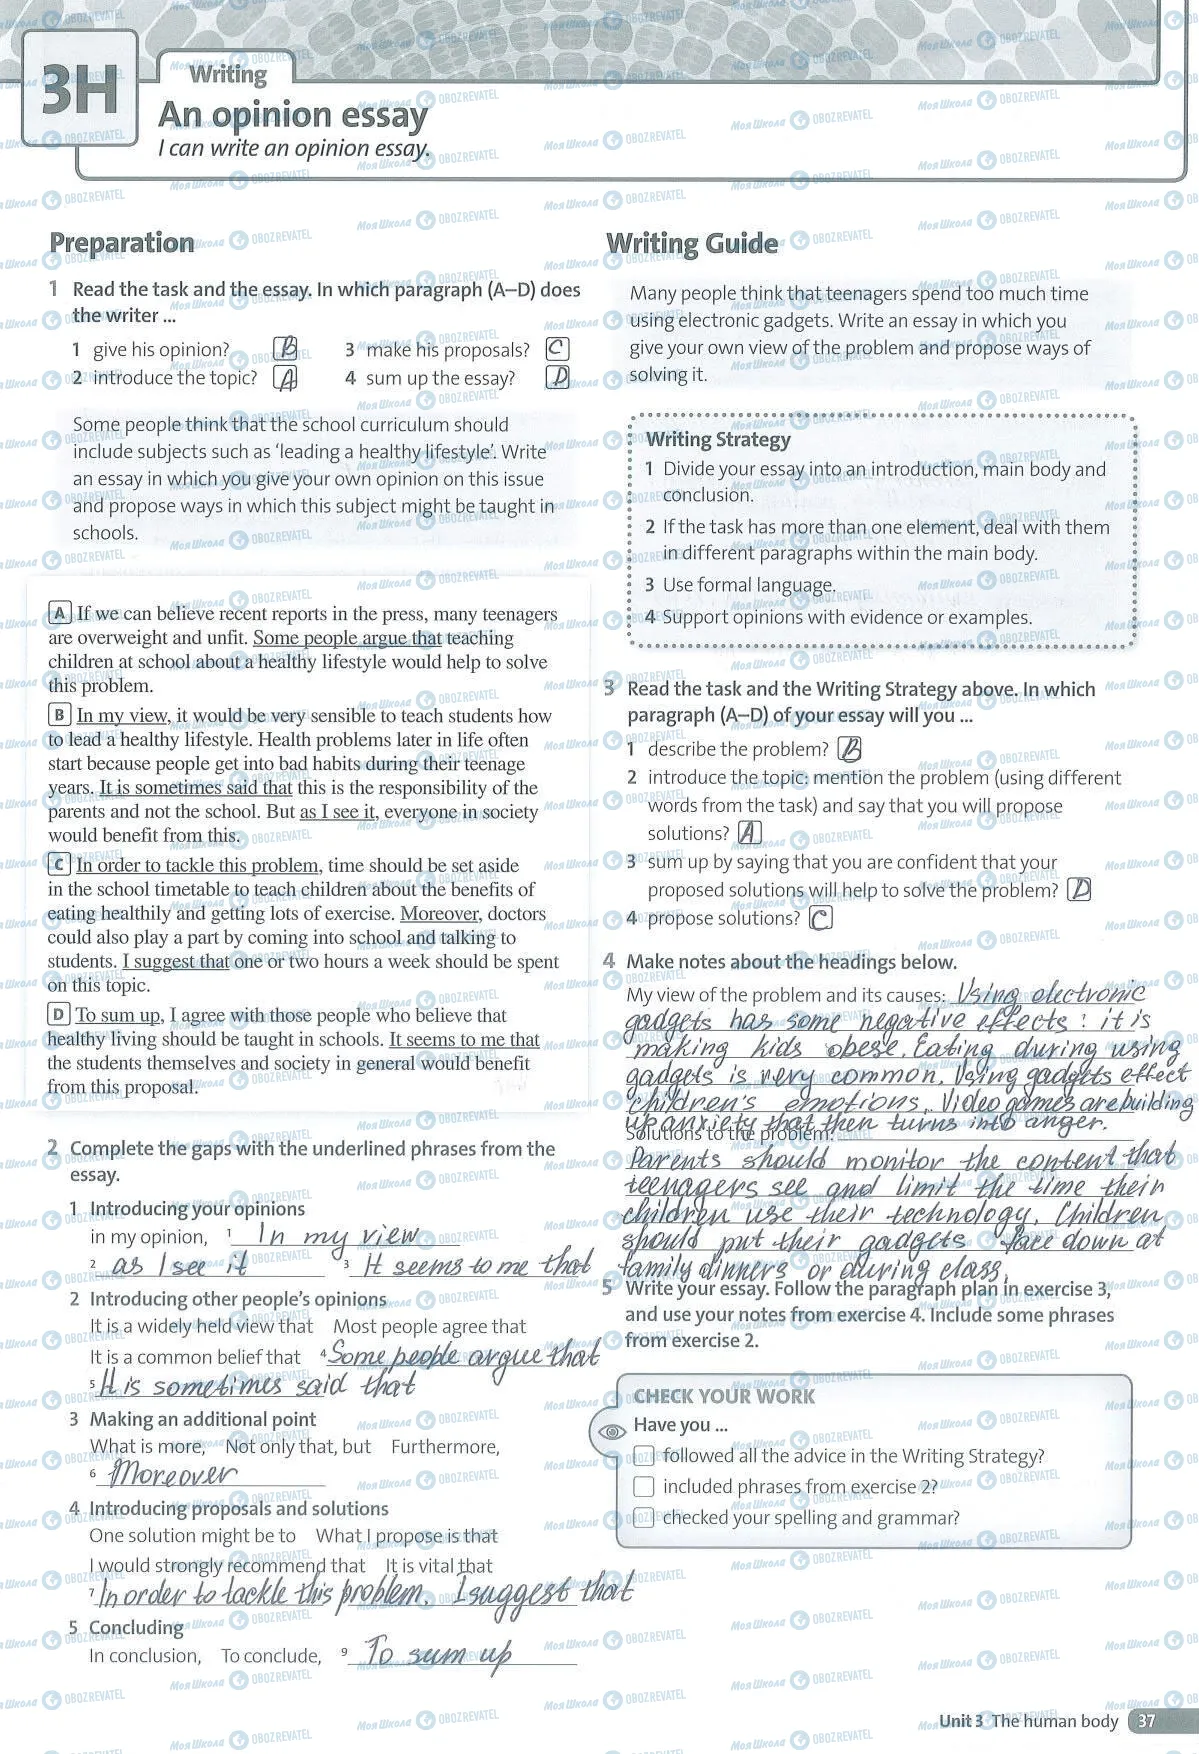 3H
Writing
An opinion essay
I can write an opinion essay.
Preparation
1 Read the task and the essay. In which paragraph (A–D) does
the writer ...
1 give his opinion? B
2 introduce the topic? A
3 make his proposals? C
4 sum up the essay? D
Some people think that the school curriculum should
include subjects such as ‘leading a healthy lifestyle’. Write
an essay in which you give your own opinion on this issue
and propose ways in which this subject might be taught in
schools.
A If we can believe recent reports in the press, many teenagers
are overweight and unfit. Some people argue that teaching
children at school about a healthy lifestyle would help to solve
this problem.
B In my view, it would be very sensible to teach students how
to lead a healthy lifestyle. Health problems later in life often
start because people get into bad habits during their teenage
years. It is sometimes said that this is the responsibility of the
parents and not the school. But as I see it, everyone in society
would benefit from this.
C In order to tackle this problem, time should be set aside
in the school timetable to teach children about the benefits of
eating healthily and getting lots of exercise. Moreover, doctors
could also play a part by coming into school and talking to
students. I suggest that one or two hours a week should be spent
on this topic.
D To sum up, I agree with those people who believe that
healthy living should be taught in schools. It seems to me that
the students themselves and society in general would benefit
from this proposal.
2 Complete the gaps with the underlined phrases from the
essay.
1 Introducing your opinions
in my opinion, 1 In my view
2 as I see it 3 It seems to me that
2 Introducing other people’s opinions
It is a widely held view that Most people agree that
It is a common belief that 4 Some people argue that
5 It is sometimes said that
3 Making an additional point
What is more, Not only that, but Furthermore,
6 Moreover
4 Introducing proposals and solutions
One solution might be to What I propose is that
I would strongly recommend that It is vital that
7 In order to tackle this problem, I suggest that
5 Concluding
In conclusion, To conclude, 9 To sum up
Writing Guide
Many people think that teenagers spend too much time
using electronic gadgets. Write an essay in which you
give your own view of the problem and propose ways of
solving it.
Writing Strategy
1 Divide your essay into an introduction, main body and
conclusion.
2 If the task has more than one element, deal with them
in different paragraphs within the main body.
3 Use formal language.
4 Support opinions with evidence or examples.
3 Read the task and the Writing Strategy above. In which
paragraph (A–D) of your essay will you ...
1 describe the problem? B
2 introduce the topic: mention the problem (using different
words from the task) and say that you will propose
solutions? A
3 sum up by saying that you are confident that your
proposed solutions will help to solve the problem? D
4 propose solutions? C
4 Make notes about the headings below.
My view of the problem and its causes: Using electronic
gadgets has some negative effects: it is
making kids obese. Eating during using
gadgets is very common. Using gadgets effect
children's emotions. Video games are building
up anxiety that then turns into anger.
Solutions to the problem:
Parents should monitor the content that
teenagers see and limit the time their
children use their technology. Children
should put their gadgets face down at
family dinners or during class.
5 Write your essay. Follow the paragraph plan in exercise 3,
and use your notes from exercise 4. Include some phrases
from exercise 2.
CHECK YOUR WORK
Have you ...
followed all the advice in the Writing Strategy?
included phrases from exercise 2?
checked your spelling and grammar?
Unit 3 The human body 37
Моя Школа OBOZREVATEL